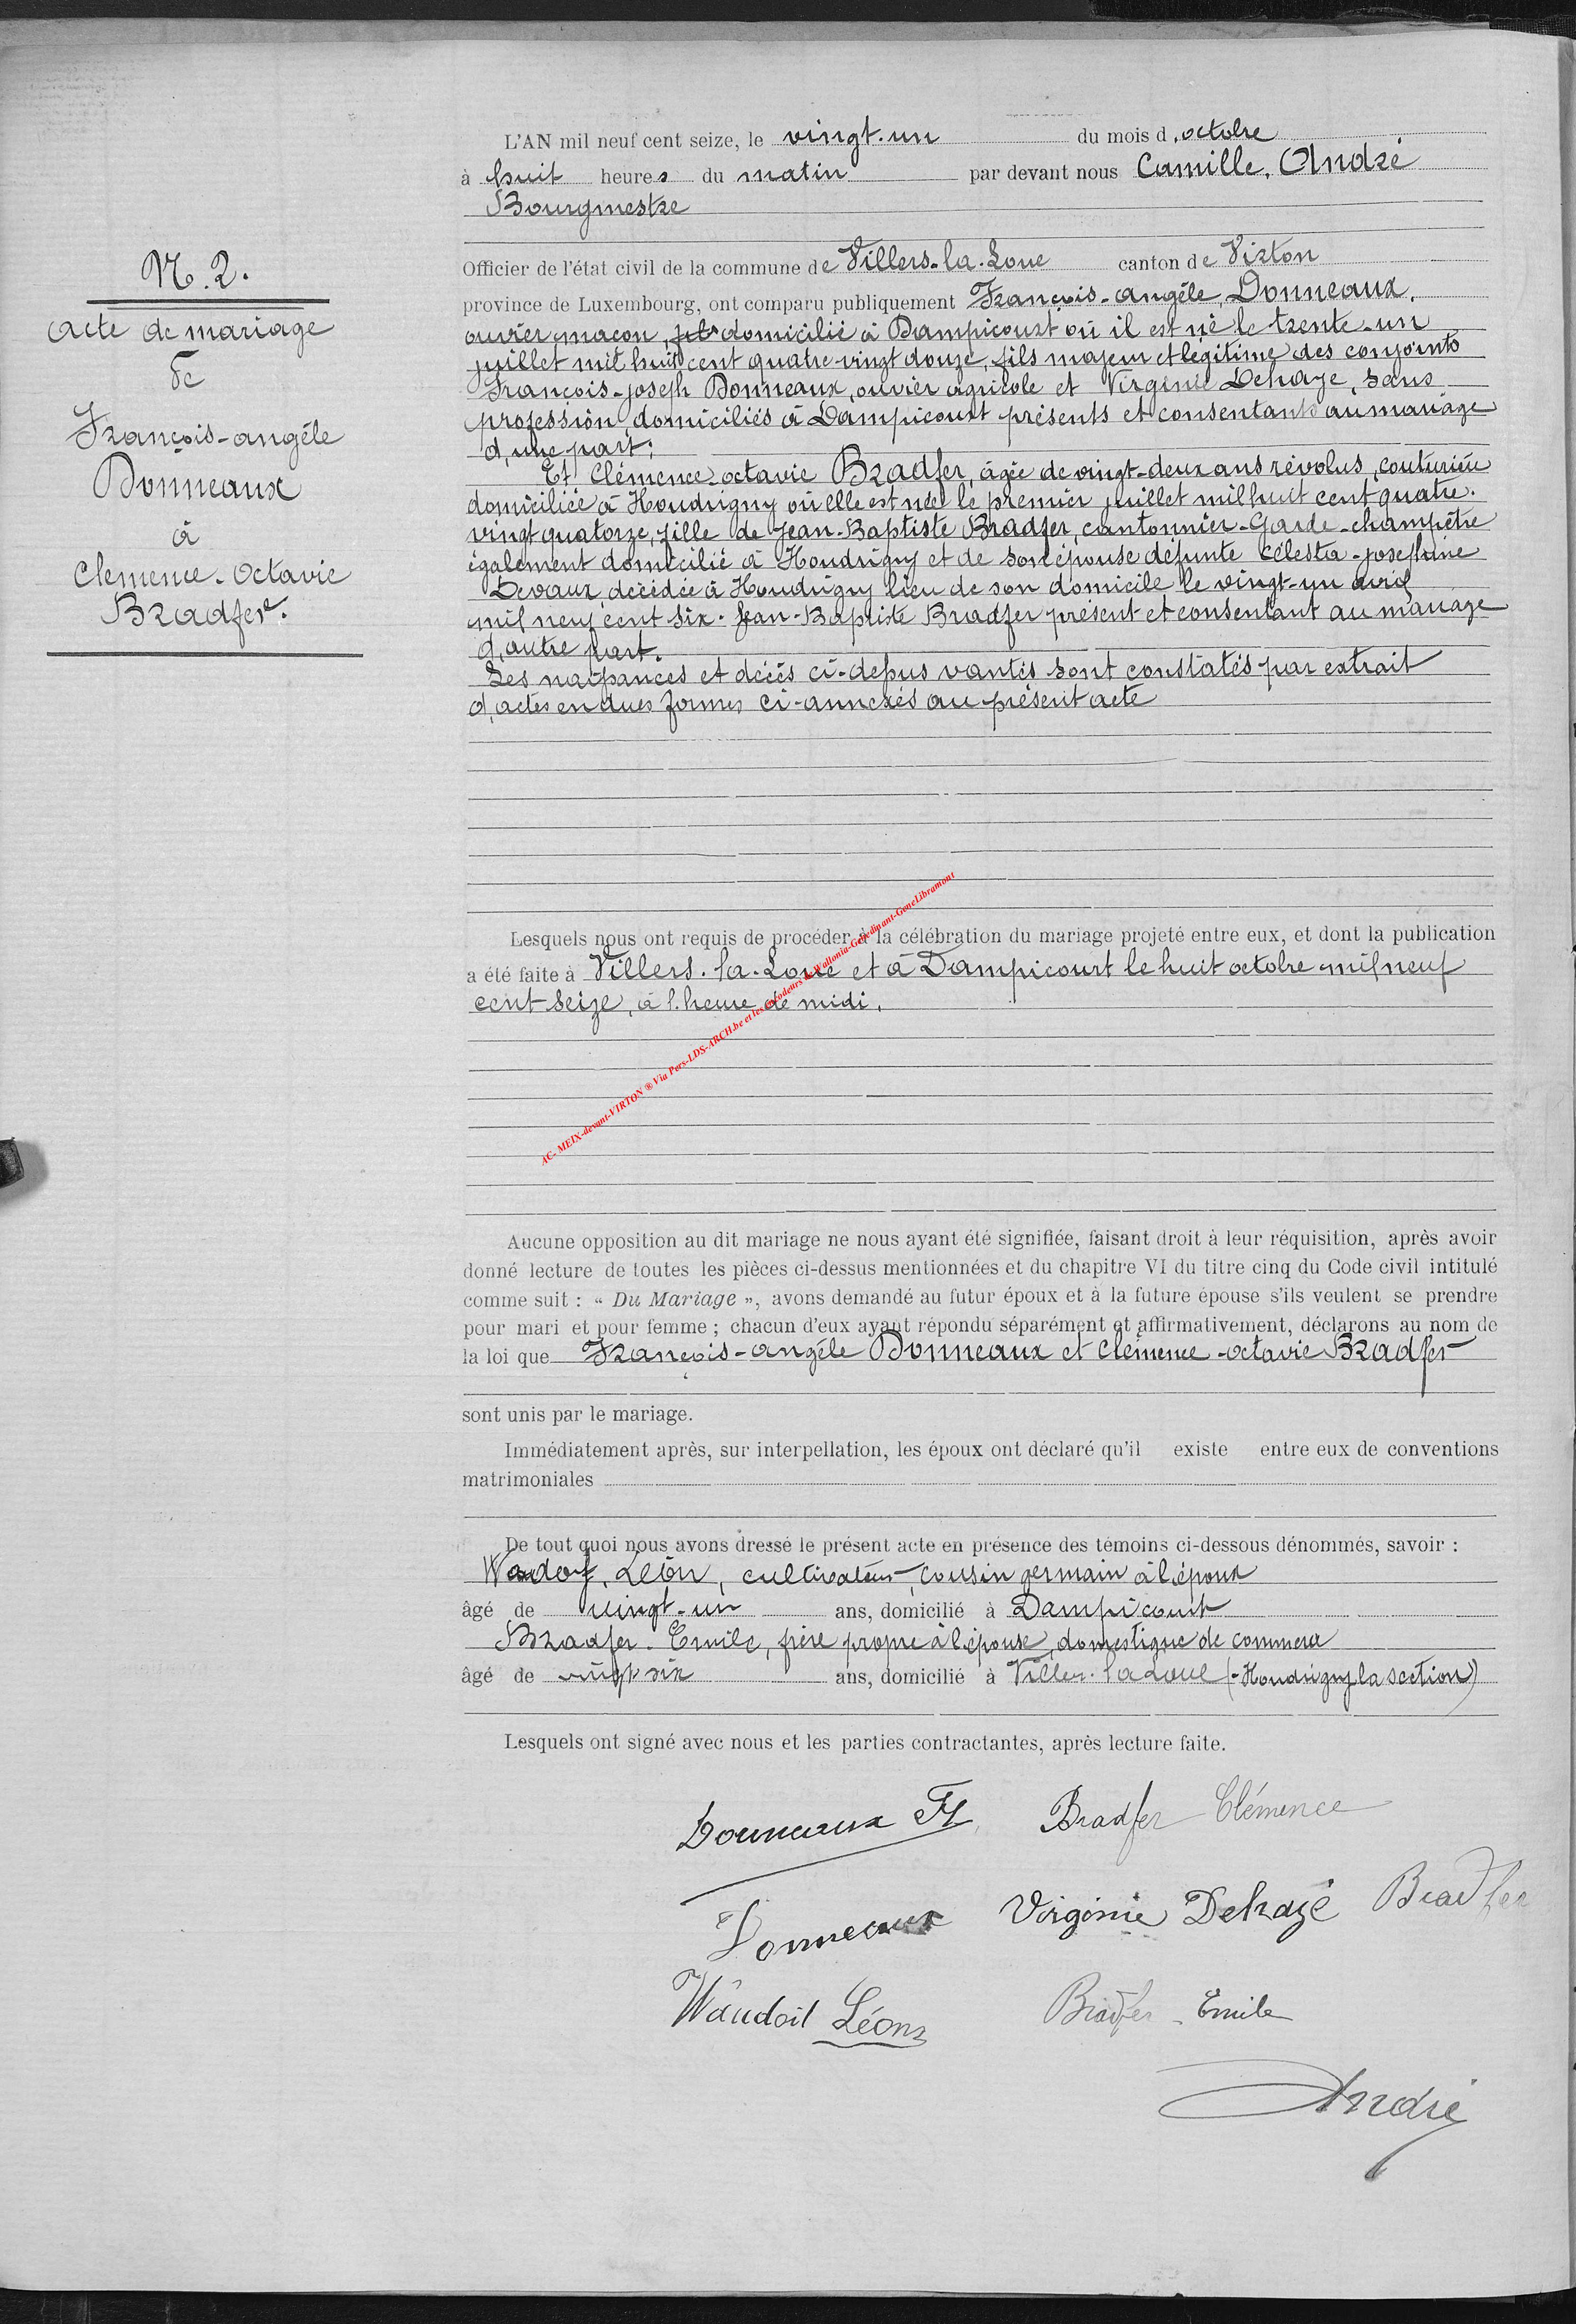 N. 2.
Acte de mariage
de
François-angèle
Donneaux
à
Clemence-Octavie
Bradfer.
L'AN mil neuf cent seize, le vingt-un du mois d'octobre
à huit heures du matin par devant nous Camille, André
Bourgmestre
Officier de l'état civil de la commune de Villers-la-Loue canton de Virton
province de Luxembourg, ont comparu publiquement François-angèle, Donneaux,
ouvrier maçon, fils domicilié à Dampicourt où il est né le trente-un
juillet mil huit cent quatre-vingt douze, fils majeur et légitime des conjoints
François-joseph Donneaux, ouvrier agricole et Virginie Dehaye, sans
profession, domiciliés à Dampicourt présents et consentants au mariage
d'une part;
Et Clémence-octavie Bradfer, âgée de vingt-deux ans révolus, couturière
domiciliée à Houdrigny où elle est née le premier juillet mil huit cent quatre-
vingt quatorze, fille de Jean-Baptiste Bradfer, cantonnier-Garde-champêtre
également domicilié à Houdrigny et de son épouse défunte Célesta-josephine
Devaux, décédée à Houdrigny lieu de son domicile le vingt-un avril
mil neuf cent six. Jean-Baptiste Bradfer présent et consentant au mariage
d'autre part.
Les naissances et décès ci-dessus vantés sont constatés par extrait
d'actes en dues formes ci-annexés au présent acte
Lesquels nous ont requis de procéder à la célébration du mariage projeté entre eux, et dont la publication
a été faite à Villers-la-Loue et à Dampicourt le huit octobre mil neuf
cent seize, à l'heure de midi.
AC- MEIX-devant-VIRTON ® Via Pers-LDS-ARCH.be et les encodeurs de Wallonia-Genedinant-GeneLibramont
Aucune opposition au dit mariage ne nous ayant été signifiée, faisant droit à leur réquisition, après avoir
donné lecture de toutes les pièces ci-dessus mentionnées et du chapitre VI du titre cinq du Code civil intitulé
comme suit : « Du Mariage », avons demandé au futur époux et à la future épouse s'ils veulent se prendre
pour mari et pour femme ; chacun d'eux ayant répondu séparément et affirmativement, déclarons au nom de
la loi que François-angèle Donneaux et Clémence-octavie Bradfer
sont unis par le mariage.
Immédiatement après, sur interpellation, les époux ont déclaré qu'il existe entre eux de conventions
matrimoniales
De tout quoi nous avons dressé le présent acte en présence des témoins ci-dessous dénommés, savoir :
Léon, cultivateur, cousin germain à l'époux
âgé de vingt-un ans, domicilié à Dampicourt
Bradfer-Emile, frère propre à l'épouse, domestique de
âgé de vingt-six ans, domicilié à Villers-la Loue (-Houdrigny la section)
Lesquels ont signé avec nous et les parties contractantes, après lecture faite.
Donneaux
Bradfer Clémence
Donneaux
Virginie Dehaye
Bradfer
Waudoit Léon
Bradfer-Emile
André